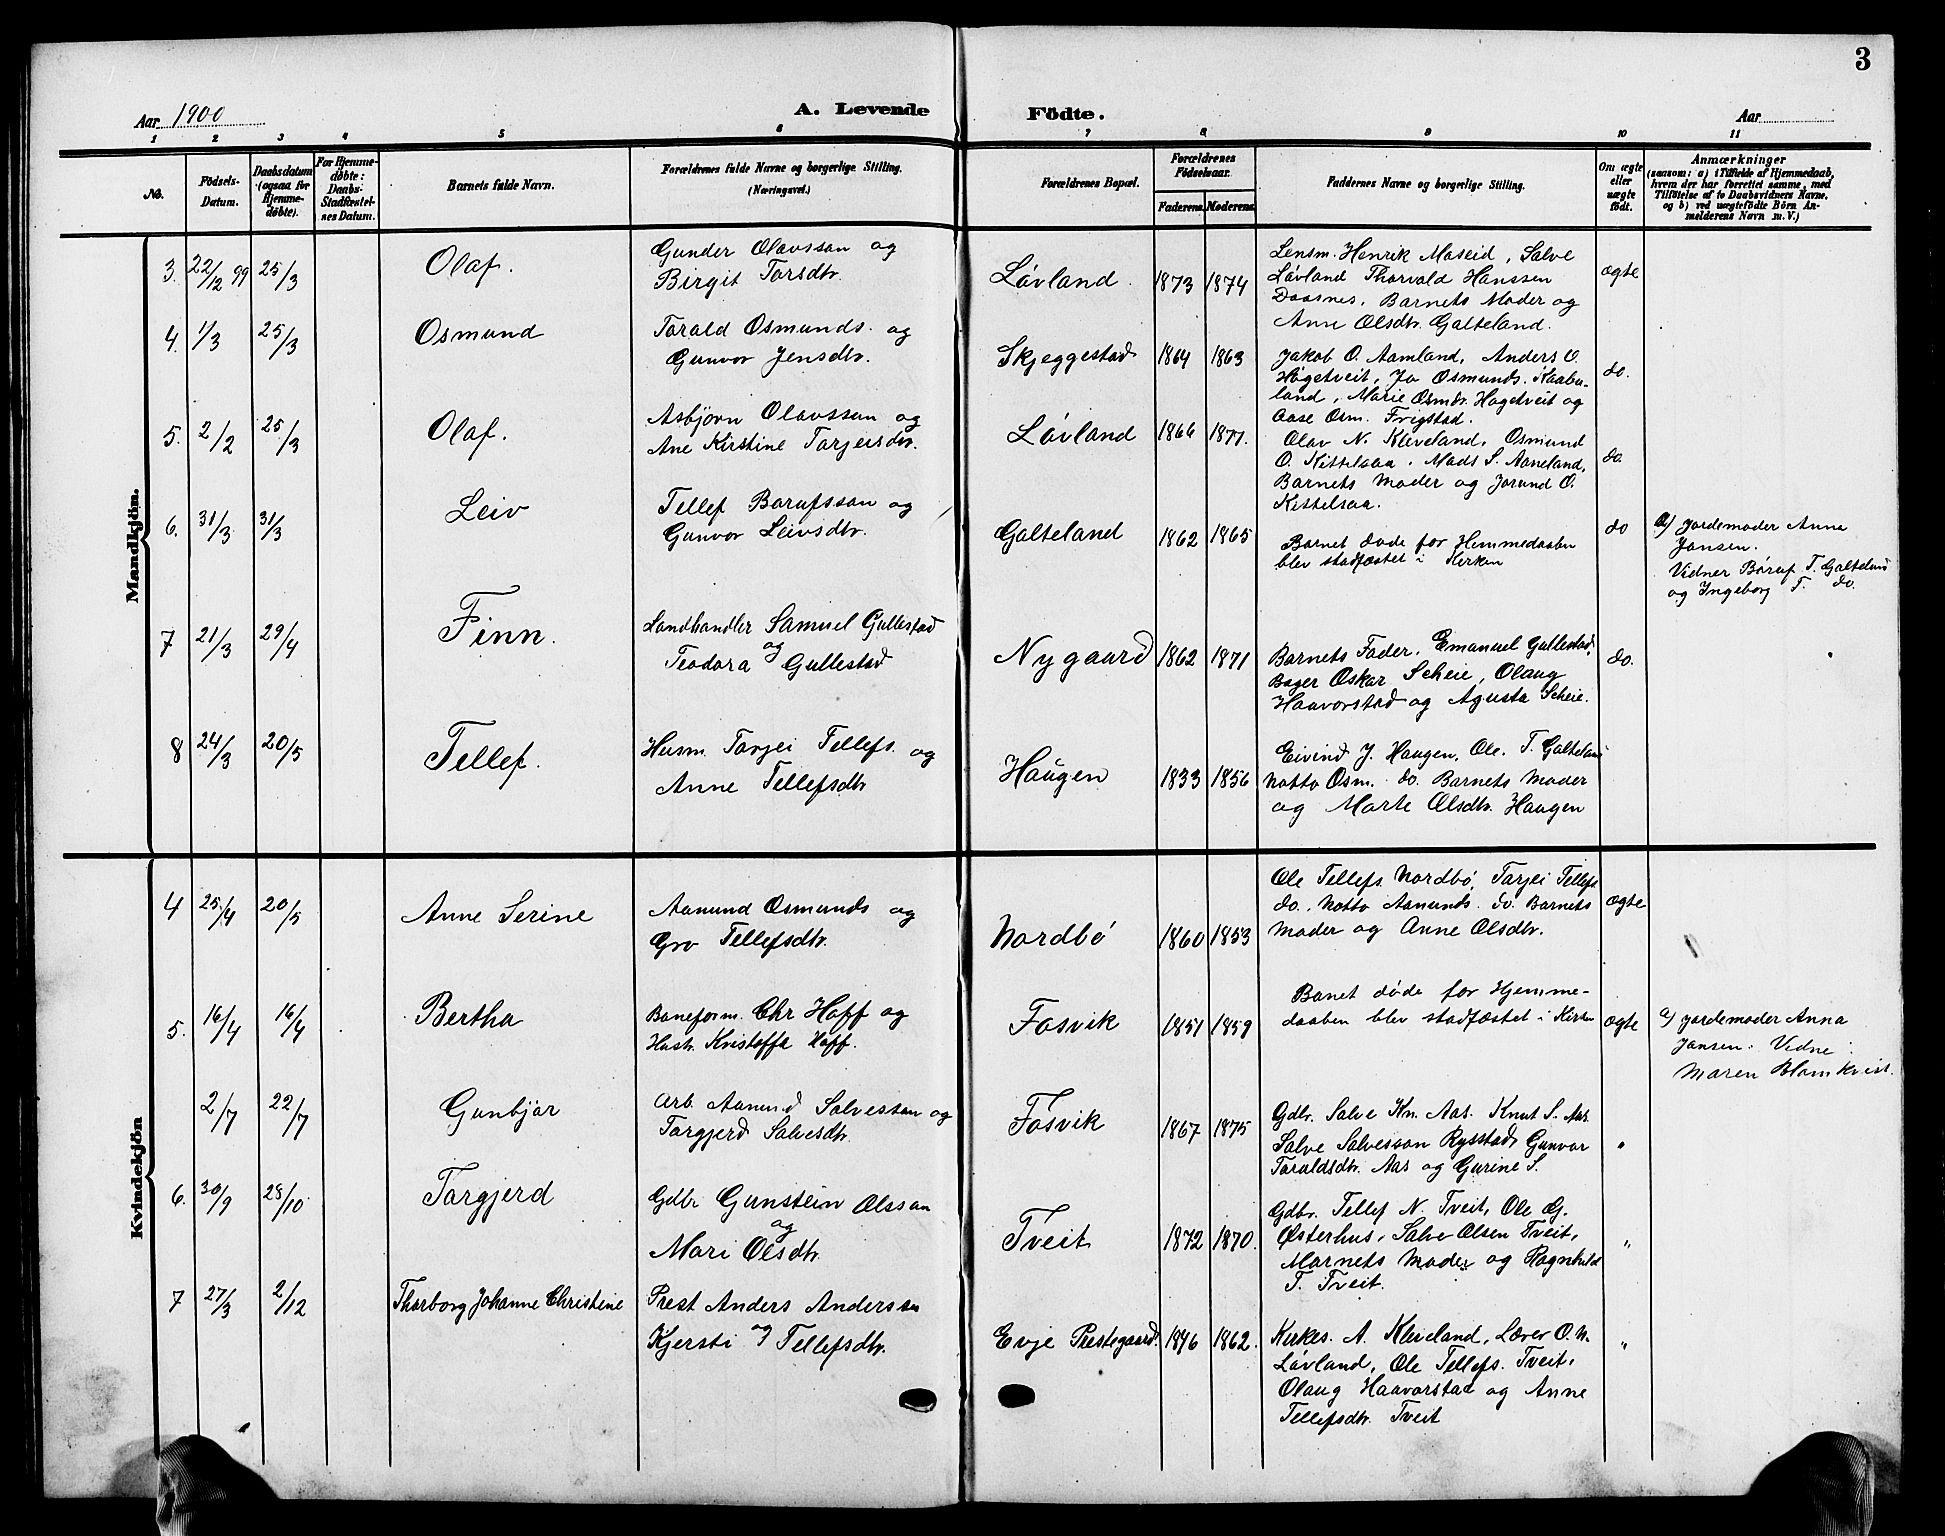 3
Aar 1900
A. Levende
Födte.
Aar
1 2 3 4 5 6 7 8 9 10 11
No.
Födsels-
Datum.
Daabsdatum
(ogsaa for
Hjemme-
døbte).
For Hjemme-
døbte:
Daabs-
Stadfæstel-
ses Datum.
Barnets fulde Navn.
Forældrenes fulde Navne og borgerlige Stilling.
(Næringsvei.)
Forældrenes Bopæl.
Forældrenes
Födselsaar.
Faderens. Moderens.
Faddernes Navne og borgerlige Stilling.
Om ægte
eller
uægte
født.
Anmærkninger
(saasom: a) i Tilfælde af Hjemmedaab,
hvem der har forrettet samme, med
Tilføielse af to Daabsvidners Navne,
og b) ved uægtefødte Børn An-
melderens Navn m. V.)
Mandkjön.
3. 22/12 99 25/3 Olaf.
Gunder Olavssøn og
Birgit Torsdtr.
Løvland. 1873 1874
Lensm. Henrik Maseid, Salve
Løvland Thorvald Hanssen
Daasnes, Barnets Moder og
Anne Olsdtr. Galteland.
ægte
4. 1/3 25/3 Osmund
Torald Osmunds. og
Gunvor Jensdtr.
Skjeggestad 1864 1863
Jakob O. Aamland, Anders O.
Høgetveit, Jo Osmunds. Kaabu-
land, Marie Osmdr. Høgetveit og
Aase Osm. Frigstad.
do.
5. 2/2 25/3 Olaf.
Asbjørn Olavssøn og
Ane Kirstine Tarjersdtr.
Løvland 1866 1871.
Olav N. Kleveland, Osmund
O. Kittelsaa, Mads S. Aaneland,
Barnets Moder og Jorund O.
Kittelsaa.
do.
6. 31/3 31/3 Leiv
Tellef Børufssøn og
Gunvor Leivsdtr.
Galteland 1862 1865
Barnet døde før Hjemmedaaben
blev stadfæstet i Kirken
do
a) Jordemoder Anna
Jansen.
Vidner Børuf T. Galteland
og Ingeborg T. do.
7 21/3 29/4 Finn.
Landhandler Samuel Gullestad
og
Teodora Gullestad
Nygaard 1862 1871
Barnets Fader, Emanuel Gullestad,
Bager Oskar Scheie, Olaug
Haavorstad og Agusta Scheie.
do.
8 24/3 20/5 Tellef.
Husm. Tarjei Tellefs. og
Anne Tellefsdtr
Haugen 1833 1856
Eivind J. Haugen, Ole T. Galteland
Notto Osm. do. Barnets Moder
og Marte Olsdtr. Haugen
Kvindekjön
4 25/4 20/5 Anne Serine
Aanund Osmunds og
Gro Tellefsdtr.
Nordbø 1860 1853
Ole Tellefs. Nordbø, Tarjei Tellefs
do. Notto Aanunds. do. Barnets
Moder og Anne Olsdtr.
ægte
5. 16/4 16/4 Bertha
Baneform. Chr Hoff og
Hustr. Kristoffa Hoff.
Fosvik 1851 1859
Banet døde før Hjemme-
daaben blev stadfæstet i Kirken
ægte
a) Jordemoder Anna
Jansen. Vidne:
Maren Blomkvist.
2/7 22/7 Gunbjør
Arb. Aanund Salvessøn og
Torgjerd Salvesdtr.
Fosvik 1867 1875
Gdbr. Salve Kn. Aas. Knut S. Aas.
Salve Salvesson Rysstad, Gunvor
Toraldsdtr. Aas og Gurine S.
"
6. 30/9 28/10 Torgjerd
Gdbr Gunstein Olssøn
og
Mari Olsdtr
Tveit 1872 1870.
Gdbr. Tellef N. Tveit, Ole G.
Østerhus, Salve Olsen Tveit,
Marnets Moder og Ragnhild
T. Tveit.
"
7 27/3 2/12 Thorborg Johanne Christine
Prest Anders Anderssen
og
Kjersti Tellefsdtr.
Evje Prestegaard. 1846 1862.
Kirkes. A. Kleveland, Lærer O. N.
Løvland, Ole Tellefs. Tveit,
Olaug Haavorstad og Anne
Tellefsdtr. Tveit
"